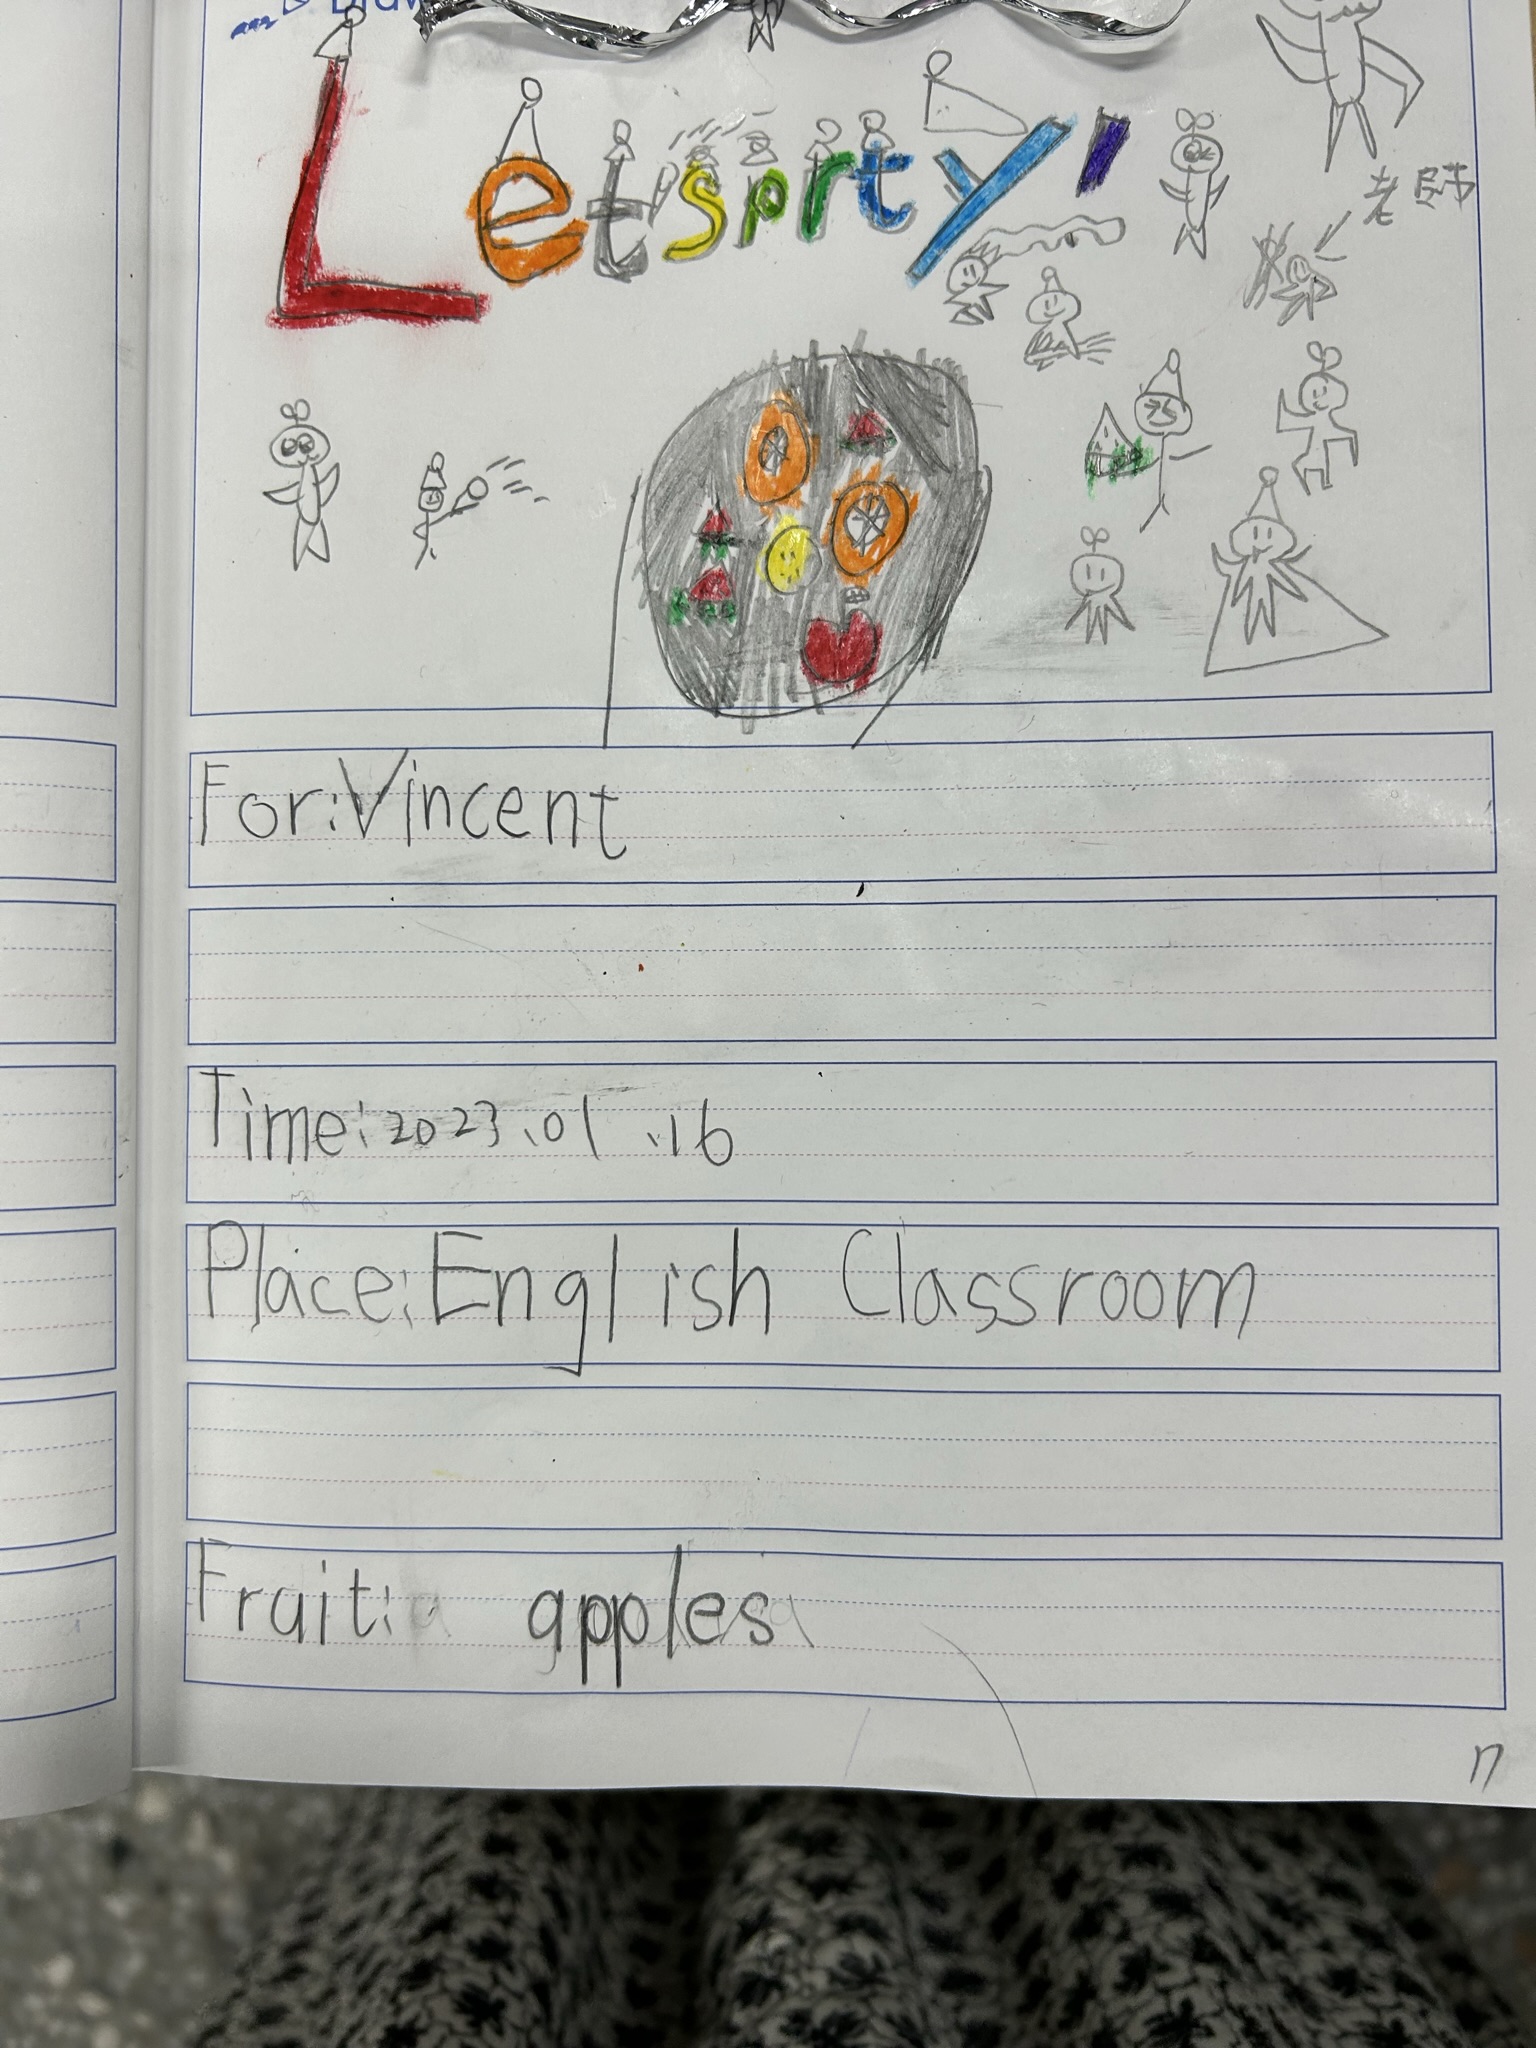 Draw
Letsprty'
老師
For:Vincent
Time:2023.01.16
Place:English Classroom
Fruit: apples
17